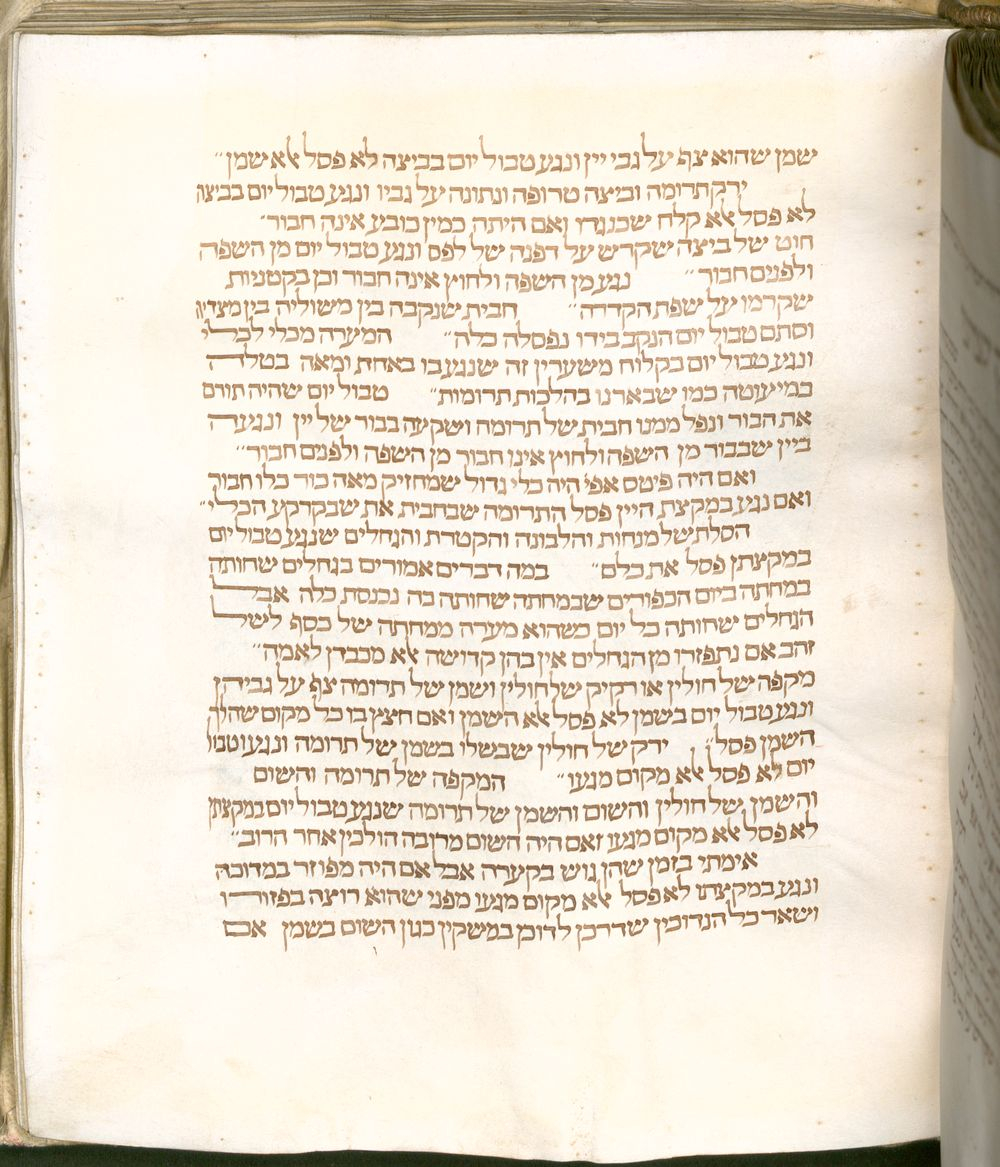 שמן שהוא צף על גבי יין ונגע טבול יום בביצה לא פסל אלא שמן״
ירק תרומה וביצה טרופה ונתונה על גביו ונגע טבול יום בביצה
לא פסל אלא קלח שכנגדו ואם היתה כמין כובע אינה חבור״
חוט של ביצה שקרש על דפנה של לפס ונגע טבול יום מן השפה
ולפנים חבור״ נגע מן השפה ולחוץ אינה חבור וכן בקטניות
שקרמו על שפת הקדרה״ חבית שנקבה בין משוליה בין מצדיה
וסתם טבול יום הנקב בידו נפסלה כלה״ המערה מכלי לכלי
ונגע טבול יום בקלוח משערין זה שנגע בו באחת ומאה בטלה
במיעוטה כמו שבארנו בהלכות תרומות״ טבול יום שהיה תורם
את הבור ונפל ממנו חבית של תרומה ושקעה בבור של יין ונגעה
ביין שבבור מן השפה ולחוץ אינו חבור מן השפה ולפנים חבור״
ואם היה פיטס אפי׳ היה כלי גדול שמחזיק מאה כור כלו חבור
ואם נגע במקצת היין פסל התרומה שבחבית את שבקרקע הכלי״
הסלת של מנחות והלבונה והקטרת והגחלים שנגע טבול יום
במקצתן פסל את כלם״ במה דברים אמורים בגחלים שחותה
במחתה ביום הכפורים שבמחתה שחותה בה נכנסת כלה אבל
הגחלים שחותה כל יום כשהוא מערה ממחתה של כסף לשל
זהב אם נתפזרו מן הגחלים אין בהן קדושה אלא מכבדן לאמה״
מקפה של חולין או רקיק של חולין ושמן של תרומה צף על גביהן
ונגע טבול יום בשמן לא פסל אלא השמן ואם חצץ בו כל מקום שהלך
השמן פסל״ ירק של חולין שבשלו בשמן של תרומה ונגע טבול
יום לא פסל אלא מקום מגעו״ המקפה של תרומה והשום
והשמן של חולין והשום והשמן של תרומה שנגע טבול יום במקצתן
לא פסל אלא מקום מגעו ואם היה השום מרובה הולכין אחר הרוב״
אימתי בזמן שהן גוש בקערה אבל אם היה מפוזר במדוכה
ונגע במקצתו לא פסל אלא מקום מגעו מפני שהוא רוצה בפזורו
ושאר כל הנדוכין שדרכן לדוכן במשקין כגון השום בשמן אם